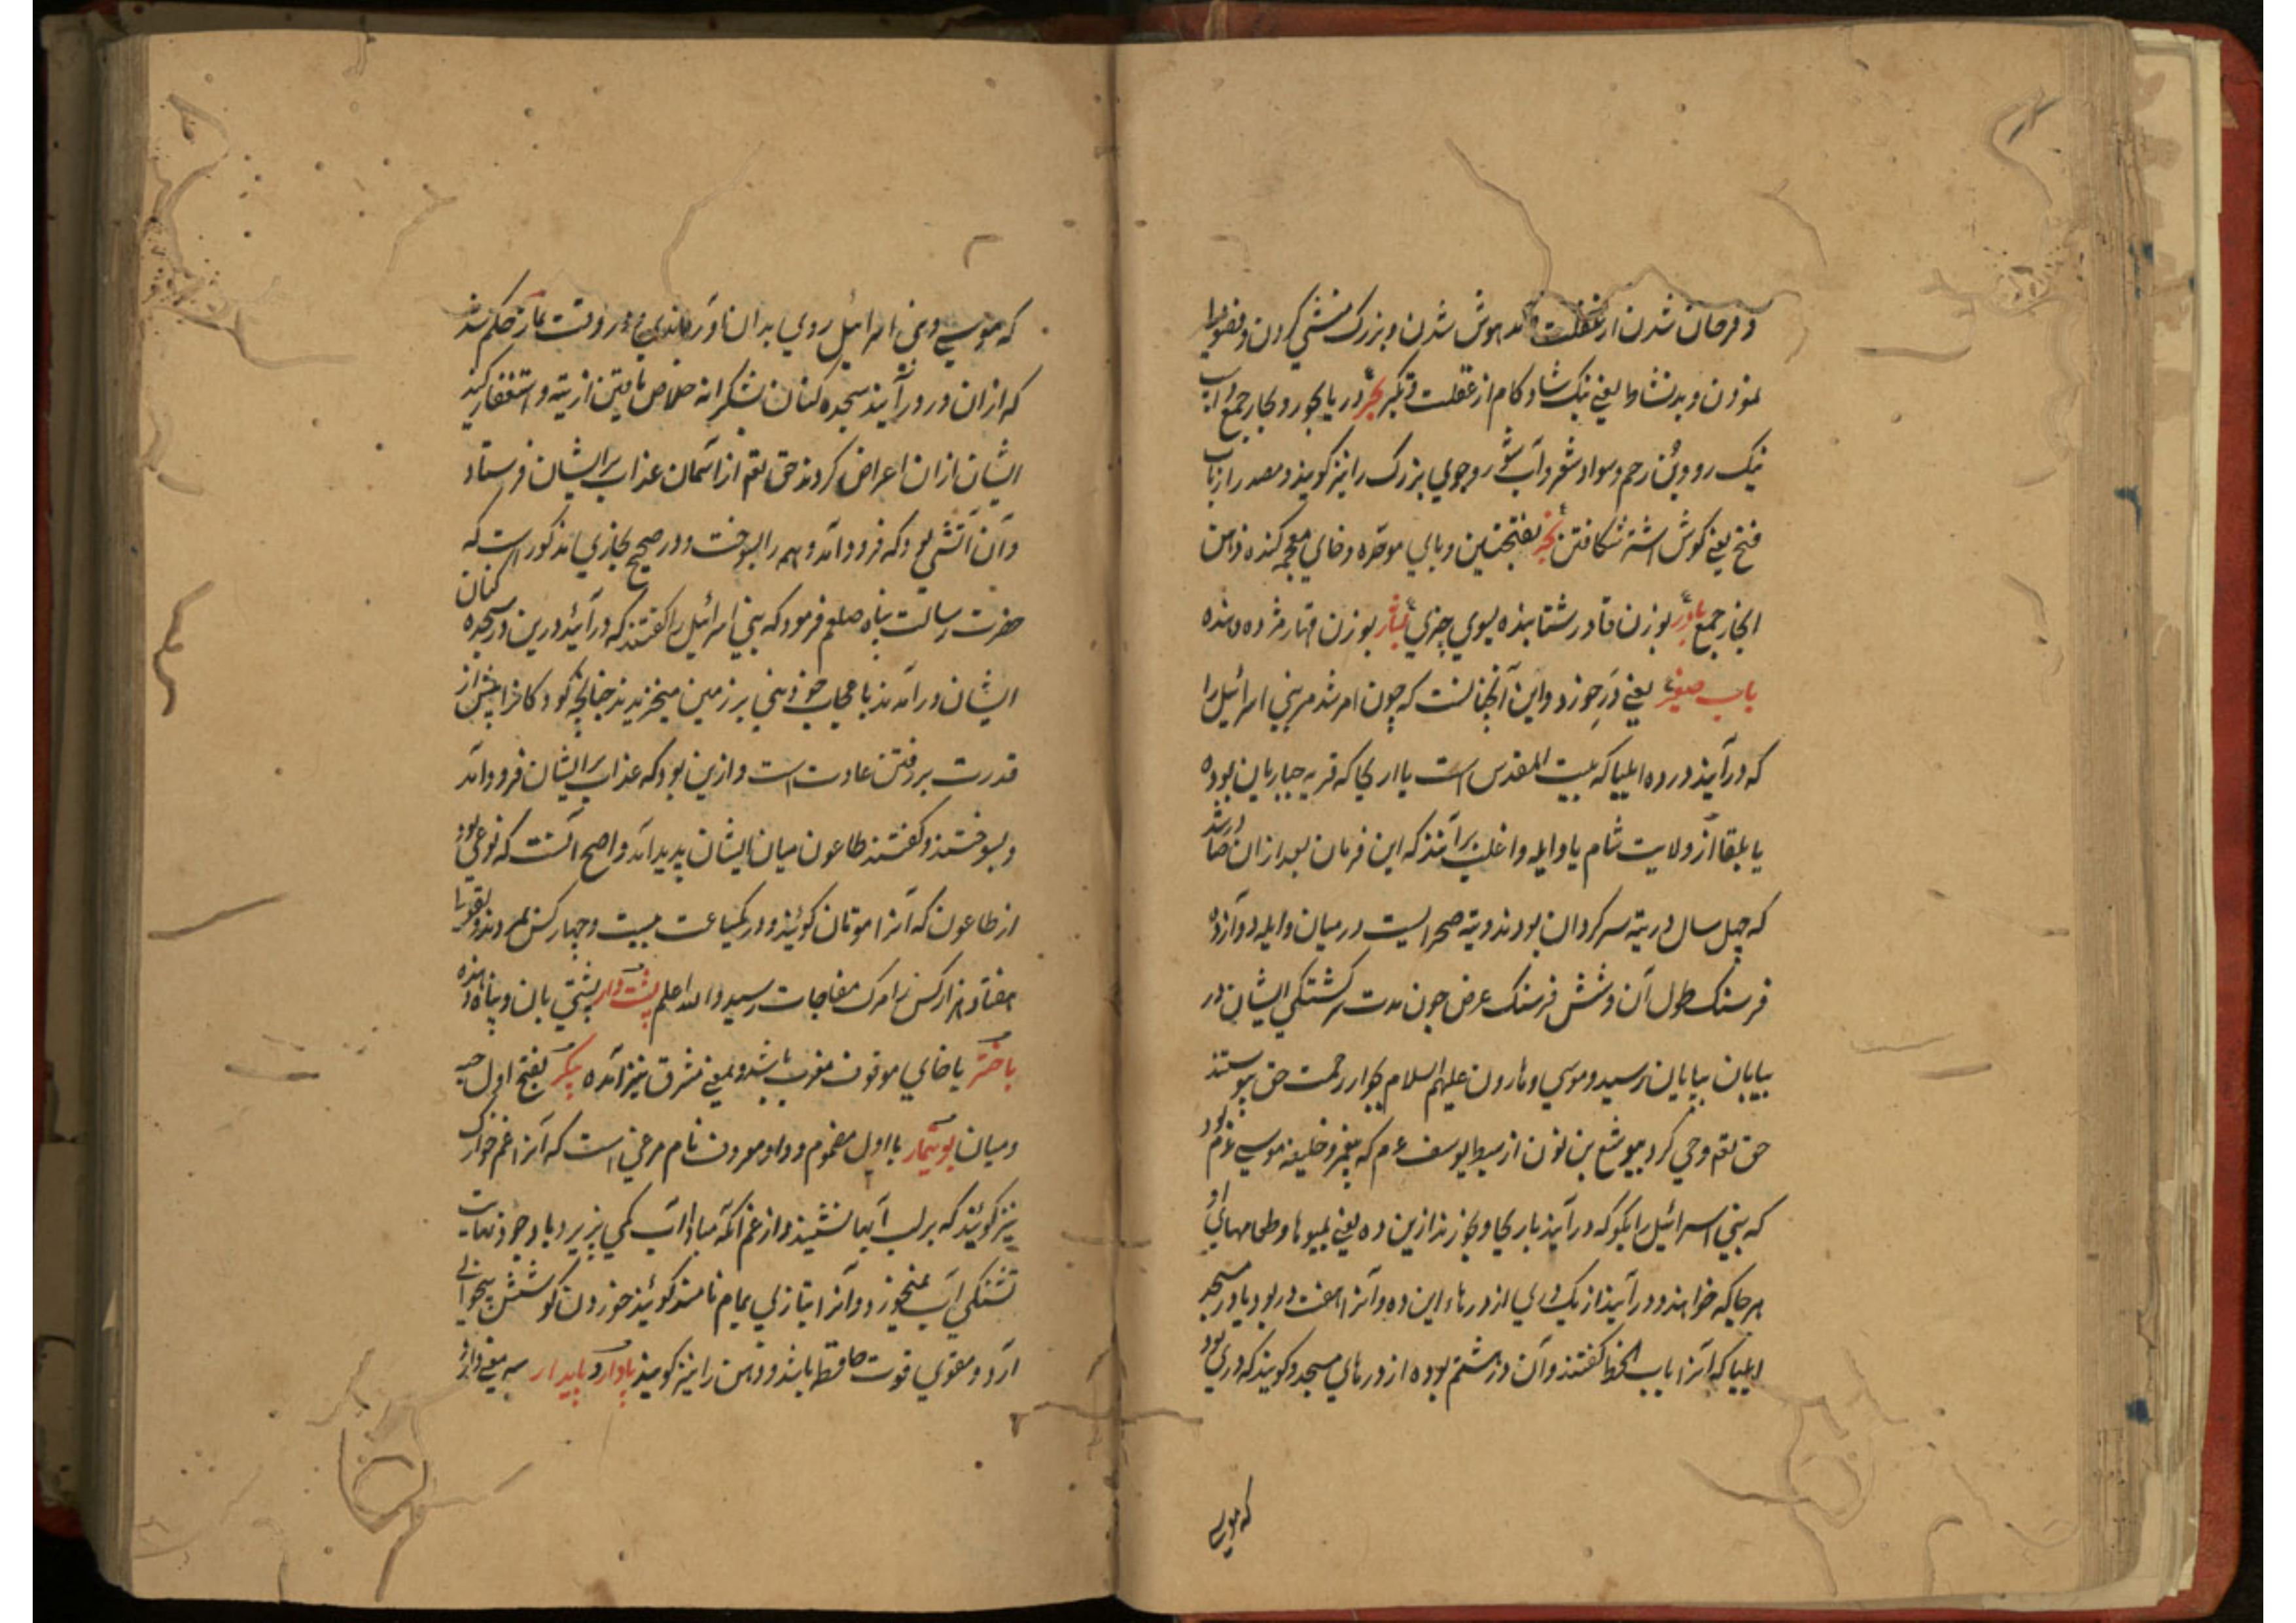 و فرحان شدن از غفلت و مدهوش شدن و بزرگ منشی کردن و
نمودن و بدنشاط یعنی نیک شاد کام از غفلت و تکبر بحر دریا بحور و بحار جمع و اسپ
نیک رو و بن رحم و سواد شهر و آب شور و جوی بزرگ را نیز کویند و مصدر از باب
فتح یعنی کوش اشتر شکافتن بخر بفتحتین و بای موحده و خای معجمه کنده دهن
ابخار جمع بادر بوزن قادر شتابنده بسوی چیزی بشار بوزن قهار مژده دهنده
باب صغیر یعنی در خورد و این آنچنانست که چون امر شد مر بنی اسرائیل را
که درآیند در ده ایلیا که بیت المقدس است یا اریحا که قریه جباریان بوده
یا بلقا از ولایت شام یا وایله و اغلب برآنند که این فرمان بعد ازان صادر شد
که چهل سال در تیه سرکردان بودند و تیه صحرائیست در میان وایله دوازده
فرسنک طول آن و شش فرسنک عرض چون مدت سرکشتکی ایشان در
بیابان بپایان رسید و موسی و هارون علیهم السلام بجوار رحمت حق پیوستند
حق تعم وحی کرد بیوشع بن نون از سبط یوسف عم که پیغمبر و خلیفه موسی عم بود
که بنی اسرائیل را بکو که درآیند باریحا و بخورند ازین ده یعنی میوها و طعامهای او
هر جا که خواهند و درآیند از یک دری از درهاء این ده و آنرا هفت در بود یا در مسجد
ایلیا که آنرا باب الخطا کفتند و آن در هشتم بوده از درهای مسجد و کویند که دری بود
که موسی
که موسی و بنی اسرائیل روی بدان آوردندی در وقت نماز حکم شد
که ازان در درآیند سجده کنان بشکرانه خلاص یافتن از تیه و استغفار کنند
ایشان ازان اعراض کردند حق تعم از آسمان عذاب بر ایشان فرستاد
و آن آتشی بود که فرود آمد و همه را بسوخت و در صحیح بخاری مذکور است که
حضرت رسالت پناه صلعم فرمود که بنی اسرائیل را کفتند که درآئید درین در سجده کنان
ایشان درآمدند با عجاب خود یعنی بر زمین میخزیدند چنانچه کودکان را پیش از
قدرت بر رفتن عادت است و ازین بود که عذاب بر ایشان فرود آمد
و بسوختند و کفتند طاعون میان ایشان پدید آمد و اصح آنست که نوعی بود
از طاعون که آنرا موتان کویند و در یکساعت بیست و چهار کس بمردند و بقولی
هفتاد هزار کس را مرک مفاجات رسید والله اعلم پشت و دار پشتی بان و پناه دهنده
باختر با خای موقوف مغرب باشد و بمعنی مشرق نیز آمده پیکر بفتح اول
و میان بوتیمار با اول مضموم و واو معروف نام مرغی است که آنرا غم خوارک
نیز کویند که بر لب آبها نشیند و از غم آنکه مبادا آب کمی پذیرد باوجود نهایت
تشنکی آب نمیخورد و آنرا بتازی یمام نامند کویند خوردن کوشتش بیخوابی
آرد و مقوی قوت حافظه باشد و ذهن را نیز کویند پادار و پایدار سه معنی دارد